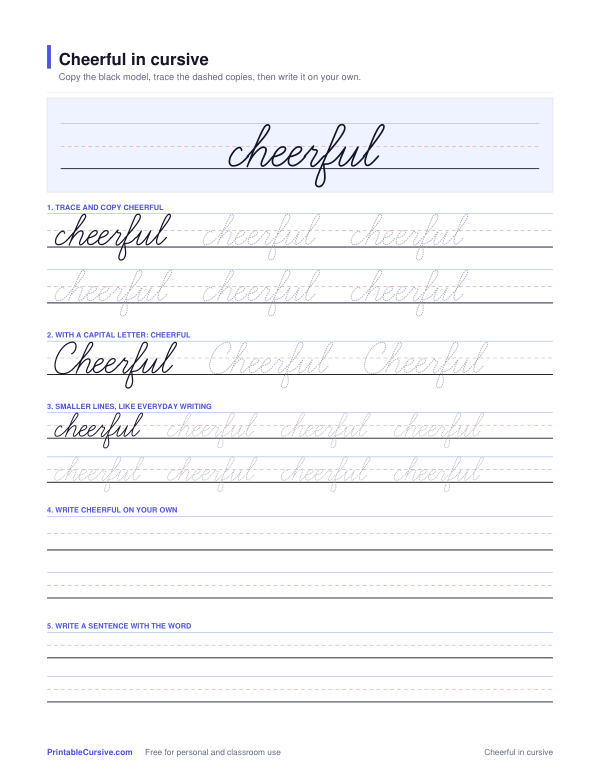 Cheerful in cursive
Copy the black model, trace the dashed copies, then write it on your own.
cheerful
1. TRACE AND COPY CHEERFUL
cheerful cheerful cheerful
cheerful cheerful cheerful
2. WITH A CAPITAL LETTER: CHEERFUL
Cheerful Cheerful Cheerful
3. SMALLER LINES, LIKE EVERYDAY WRITING
cheerful cheerful cheerful cheerful
cheerful cheerful cheerful cheerful
4. WRITE CHEERFUL ON YOUR OWN
5. WRITE A SENTENCE WITH THE WORD
PrintableCursive.com Free for personal and classroom use Cheerful in cursive